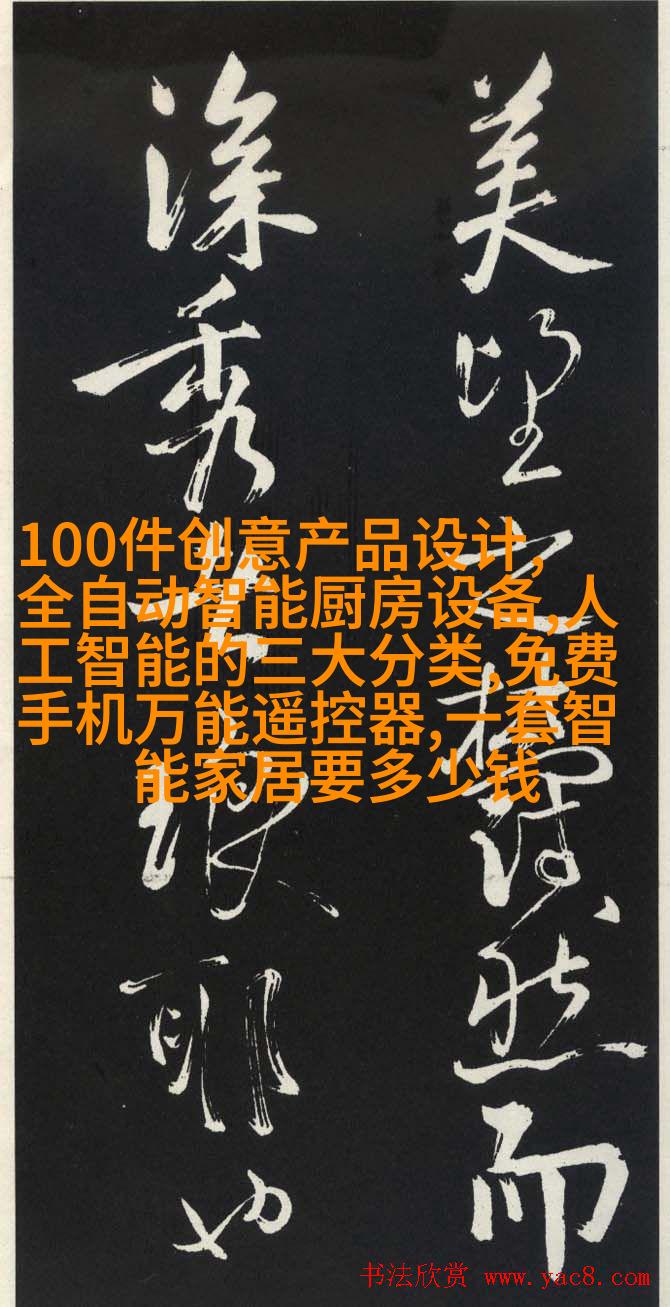 美望之蔚然而
深秀者琅耶也
100件创意产品设计,
全自动智能厨房设备,人
工智能的三大分类,免费
手机万能遥控器,一套智
能家居要多少钱
书法欣赏 www.yac8.com